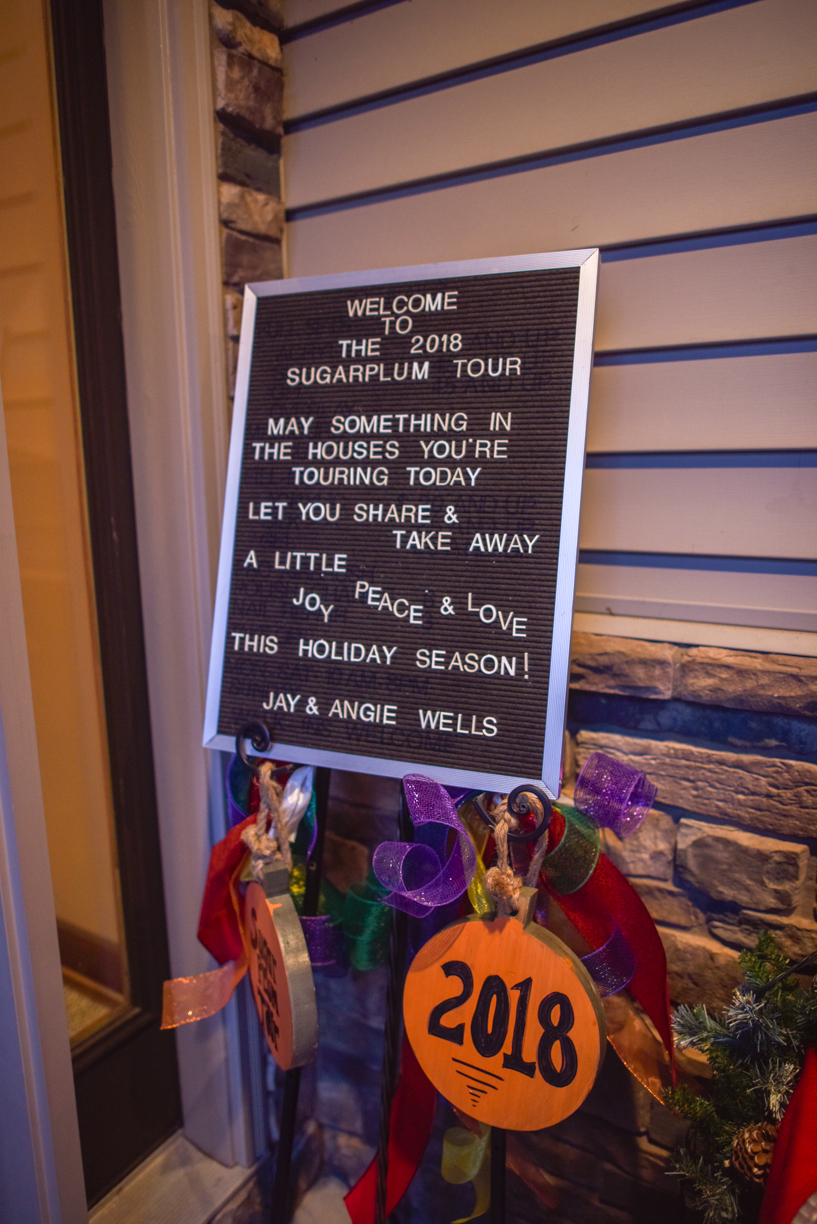 WELCOME
TO
THE 2018
SUGARPLUM TOUR
MAY SOMETHING IN
THE HOUSES YOU'RE
TOURING TODAY
LET YOU SHARE &
TAKE AWAY
A LITTLE
JOY PEACE & LOVE
THIS HOLIDAY SEASON!
JAY & ANGIE WELLS
2018